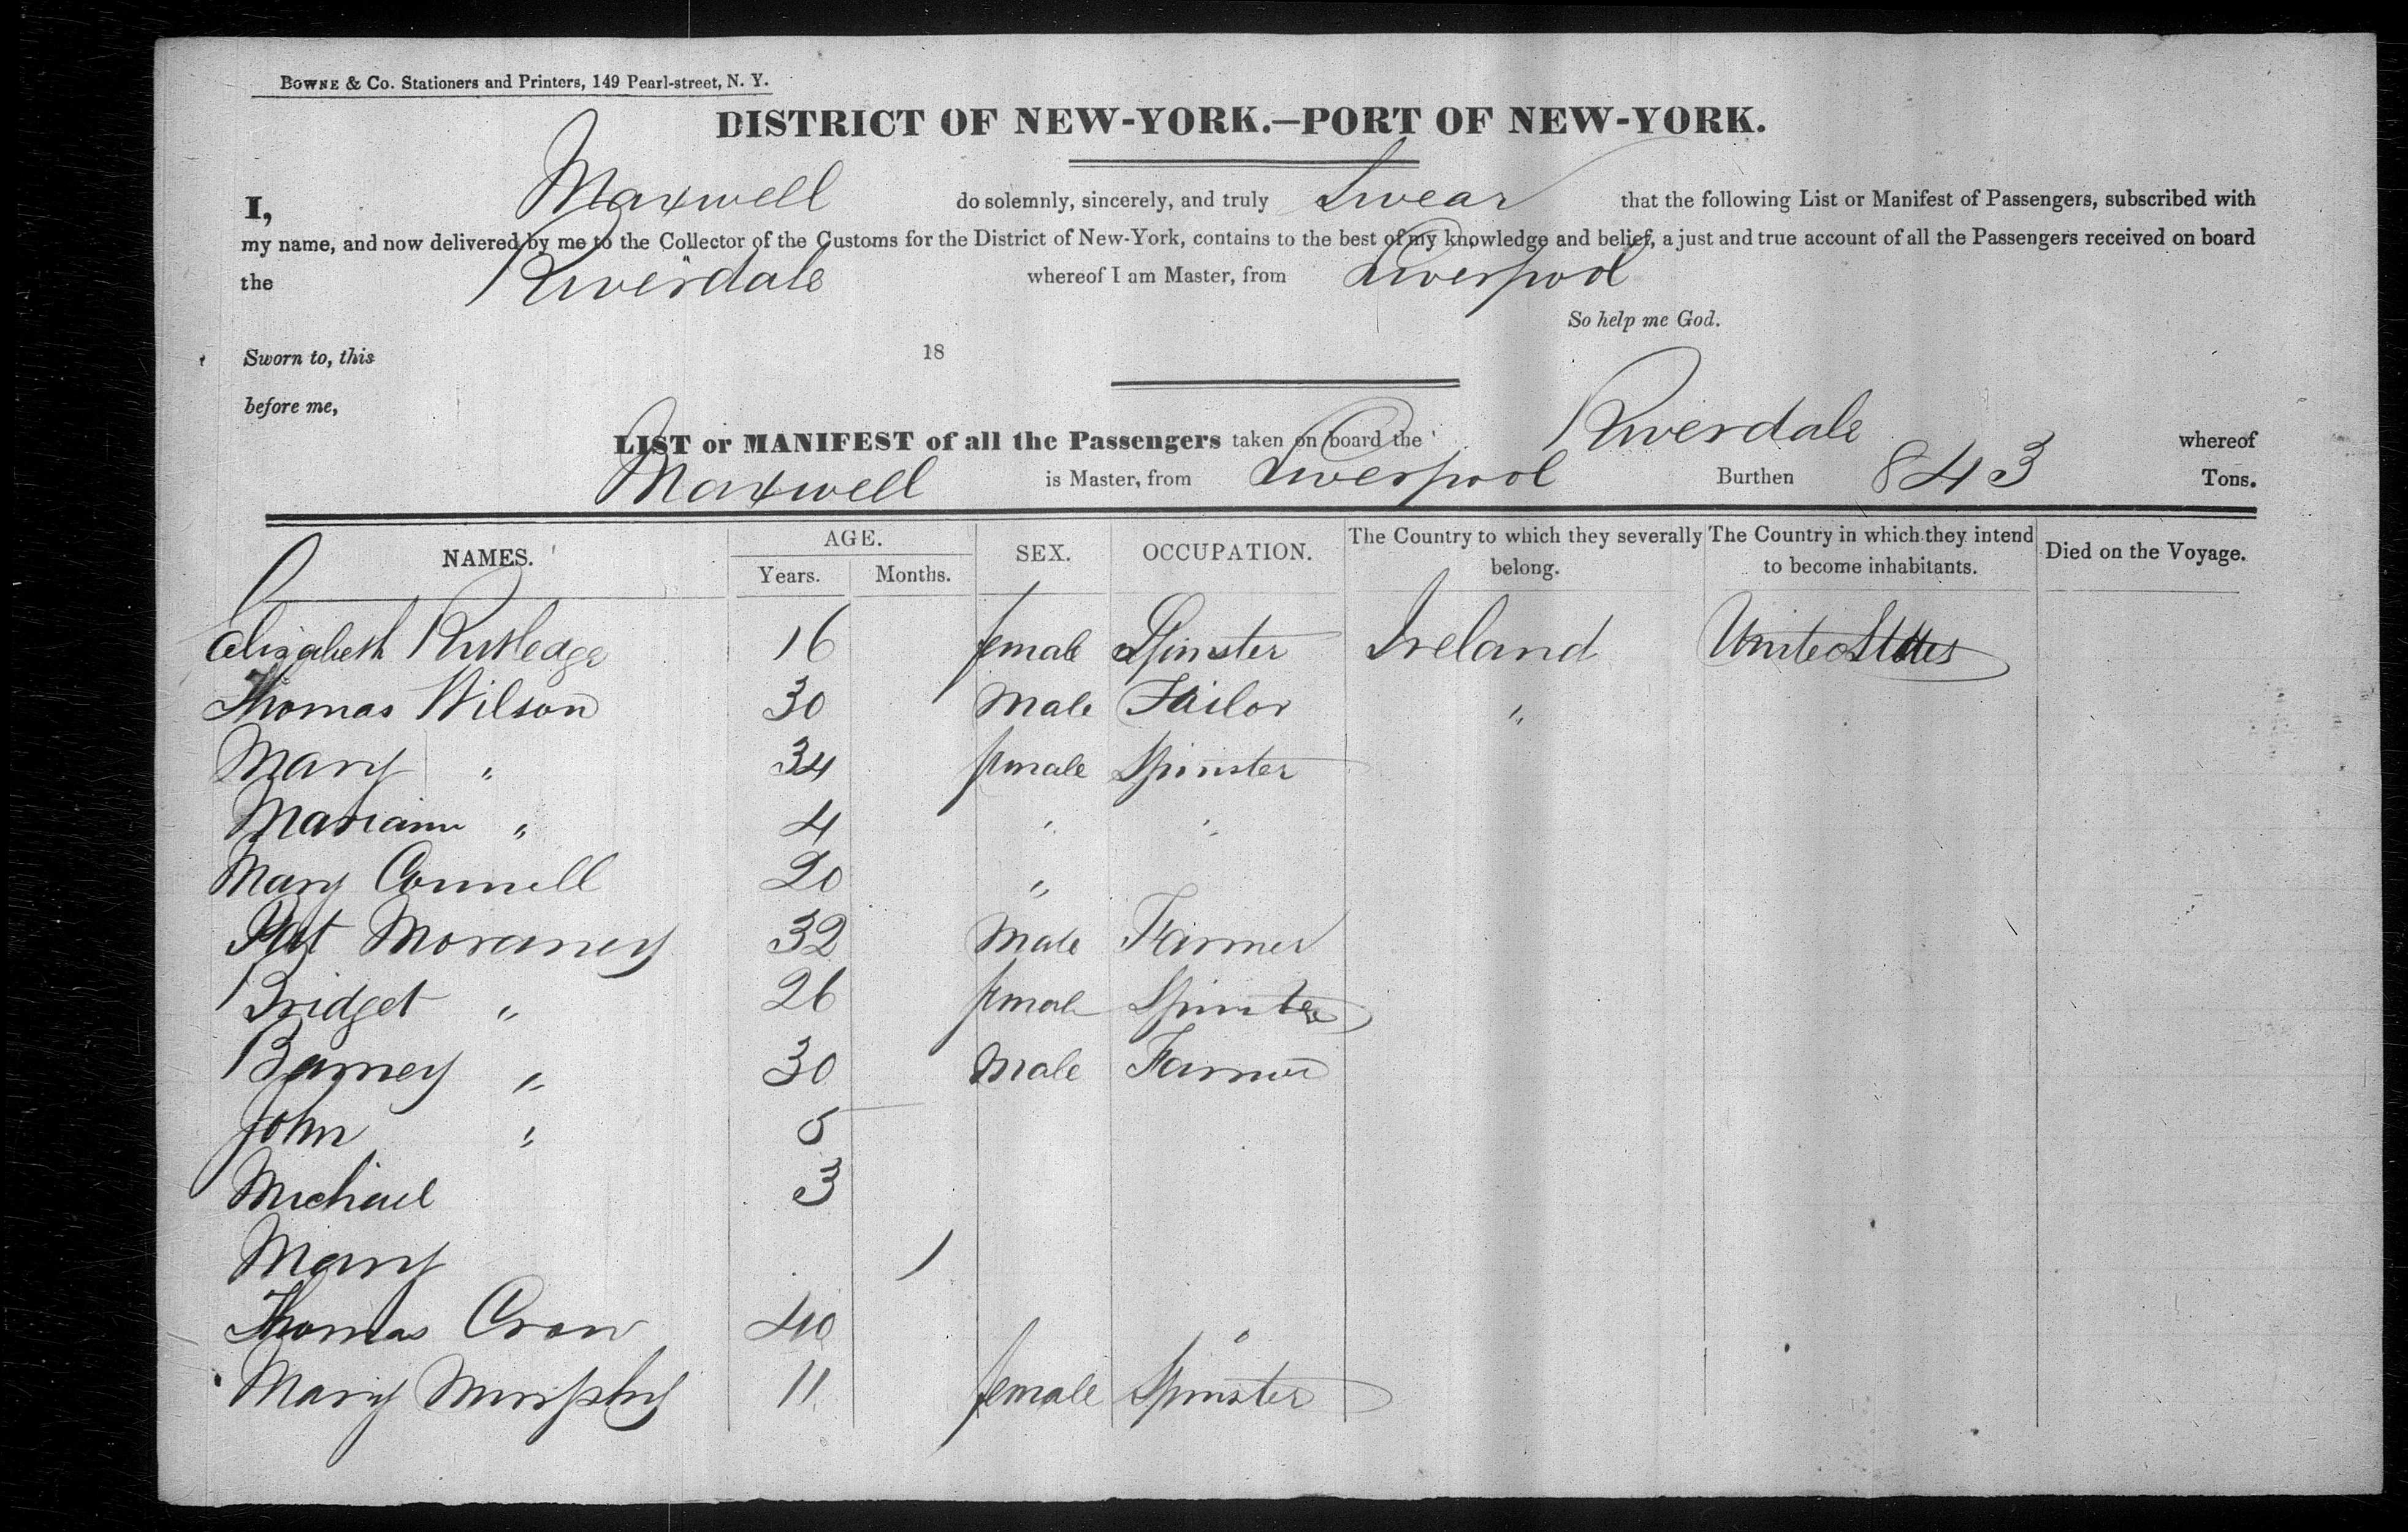 BOWNE & Co. Stationers and Printers, 149 Pearl-street, N. Y.
DISTRICT OF NEW-YORK.—PORT OF NEW-YORK.
I, Maxwell do solemnly, sincerely, and truly Swear that the following List or Manifest of Passengers, subscribed with
my name, and now delivered by me to the Collector of the Customs for the District of New-York, contains to the best of my knowledge and belief, a just and true account of all the Passengers received on board
the Riverdale whereof I am Master, from Liverpool
So help me God.
Sworn to, this 18
before me,
LIST or MANIFEST of all the Passengers taken on board the Riverdale whereof
Maxwell is Master, from Liverpool Burthen 843 Tons.
NAMES. AGE. Years. Months. SEX. OCCUPATION. The Country to which they severally belong. The Country in which they intend to become inhabitants. Died on the Voyage.
Elizabeth Rutledge 16 female Spinster Ireland United States
Thomas Wilson 30 Male Tailor "
Mary " 34 female Spinster
Mariann " 4 " "
Mary Connell 20 "
Pat Moraney 32 Male Farmer
Bridget " 26 female Spinster
Barney " 30 Male Farmer
John " 5
Michael 3
Mary 1
Thomas Crow 40 "
Mary Murphy 11 female Spinster